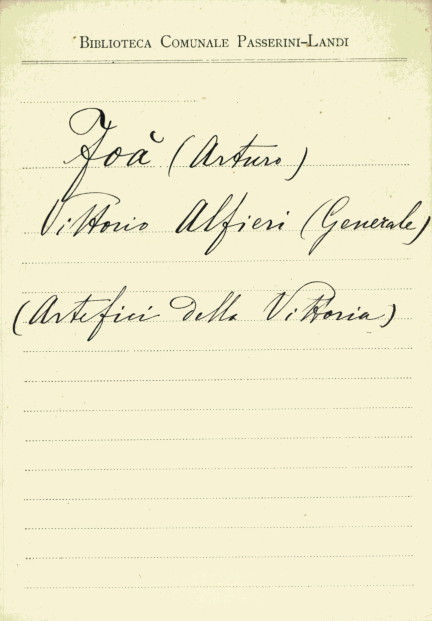 BIBLIOTECA COMUNALE PASSERINI-LANDI
Foà (Arturo)
Vittorio Alfieri (Generale)
(Artefici della Vittoria)